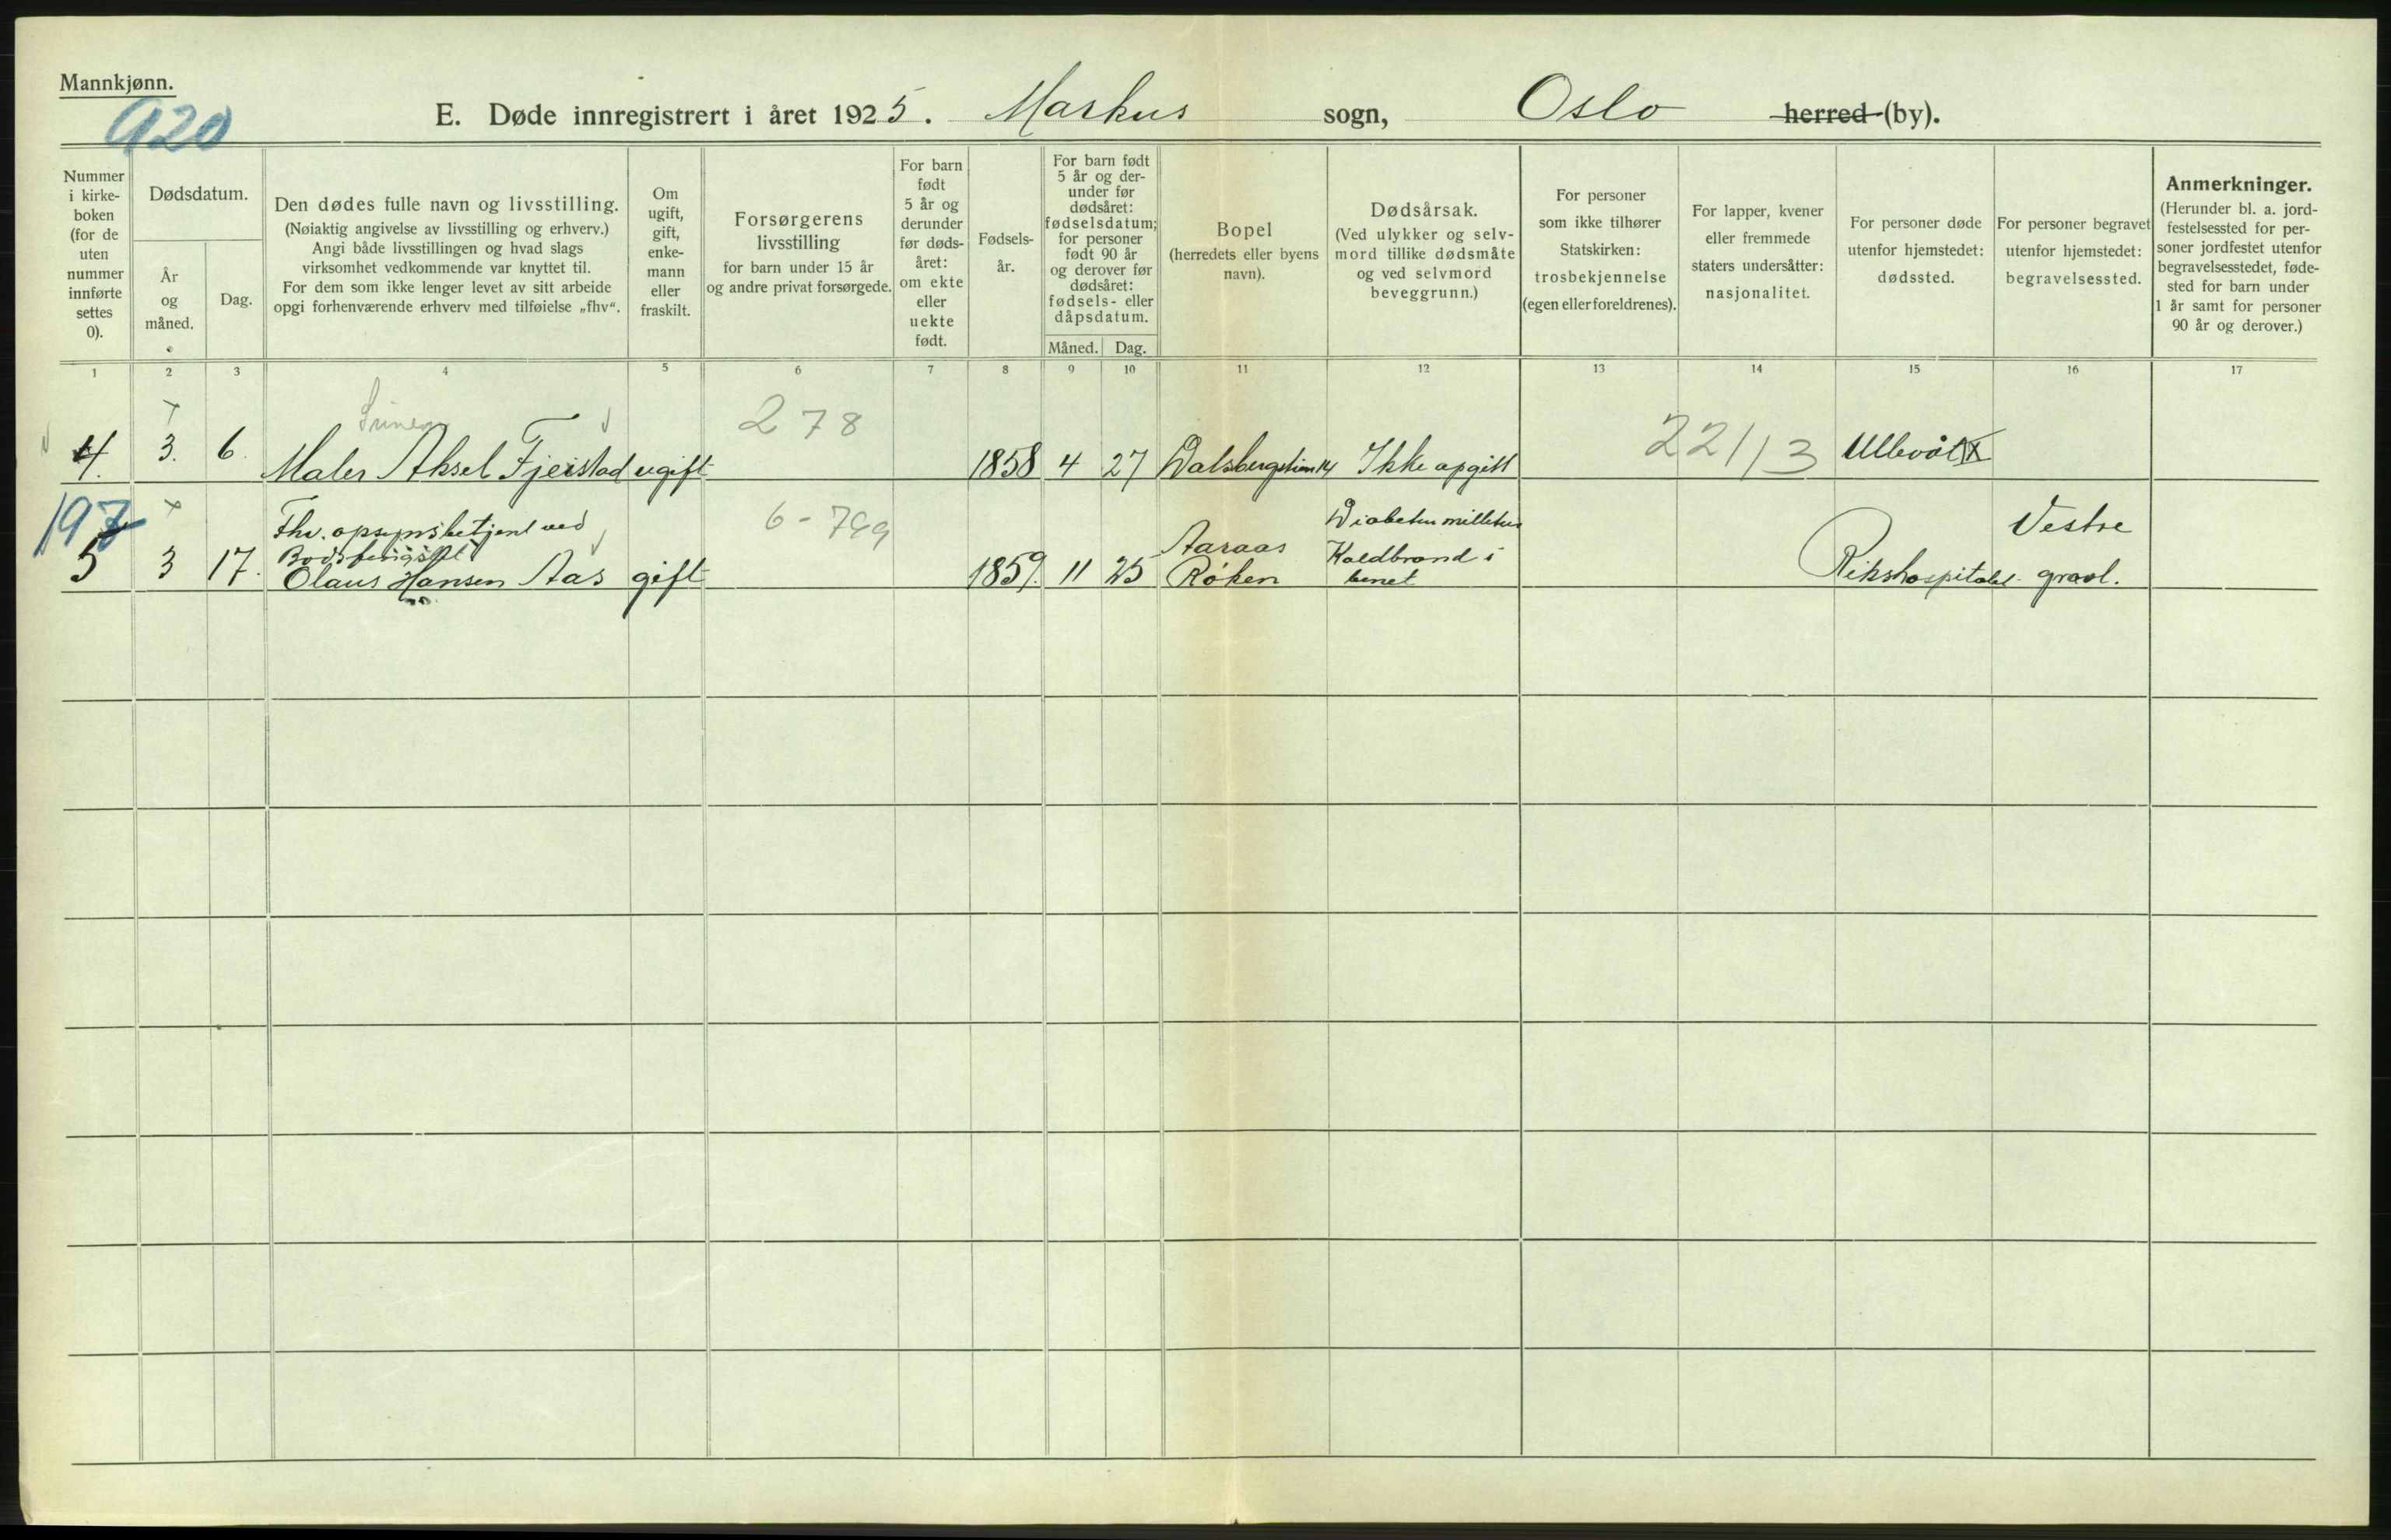 Mannkjønn.
920
E. Døde innregistrert i året 1925. Markus sogn, Oslo herred (by).
Nummer
i kirke-
boken
(for de
uten
nummer
innførte
settes
0).
Dødsdatum.
År
og
måned.
Dag.
Den dødes fulle navn og livsstilling.
(Nøiaktig angivelse av livsstilling og erhverv.)
Angi både livsstillingen og hvad slags
virksomhet vedkommende var knyttet til.
For dem som ikke lenger levet av sitt arbeide
opgi forhenværende erhverv med tilføielse „fhv“.
Om
ugift,
gift,
enke-
mann
eller
fraskilt.
Forsørgerens
livsstilling
for barn under 15 år
og andre privat forsørgede.
For barn
født
5 år og
derunder
før døds-
året:
om ekte
eller
uekte
født.
Fødsels-
år.
For barn født
5 år og der-
under før
dødsåret:
fødselsdatum;
for personer
født 90 år
og derover før
dødsåret:
fødsels- eller
dåpsdatum.
Måned. Dag.
Bopel
(herredets eller byens
navn).
Dødsårsak.
(Ved ulykker og selv-
mord tillike dødsmåte
og ved selvmord
beveggrunn.)
For personer
som ikke tilhører
Statskirken:
trosbekjennelse
(egen eller foreldrenes).
For lapper, kvener
eller fremmede
staters undersåtter:
nasjonalitet.
For personer døde
utenfor hjemstedet:
dødssted.
For personer begravet
utenfor hjemstedet:
begravelsessted.
Anmerkninger.
(Herunder bl. a. jord-
festelsessted for per-
soner jordfestet utenfor
begravelsesstedet, føde-
sted for barn under
1 år samt for personer
90 år og derover.)
1 2 3 4 5 6 7 8 9 10 11 12 13 14 15 16 17
278
22/13
4. 3. 6. Maler Aksel Fjeistad ugift 1858 4 27 14 Ikke opgitt Ullevål X
197
6-799
Fhv. opsynsbetjent ved
Bodsfengslet
Olaus Hansen Aas
5 3 17. gift 1859. 11 25
Aaraas
Røken
Diabetes millitus
Koldbrand i
benet
Rikshospitalet
Vestre
gravl.